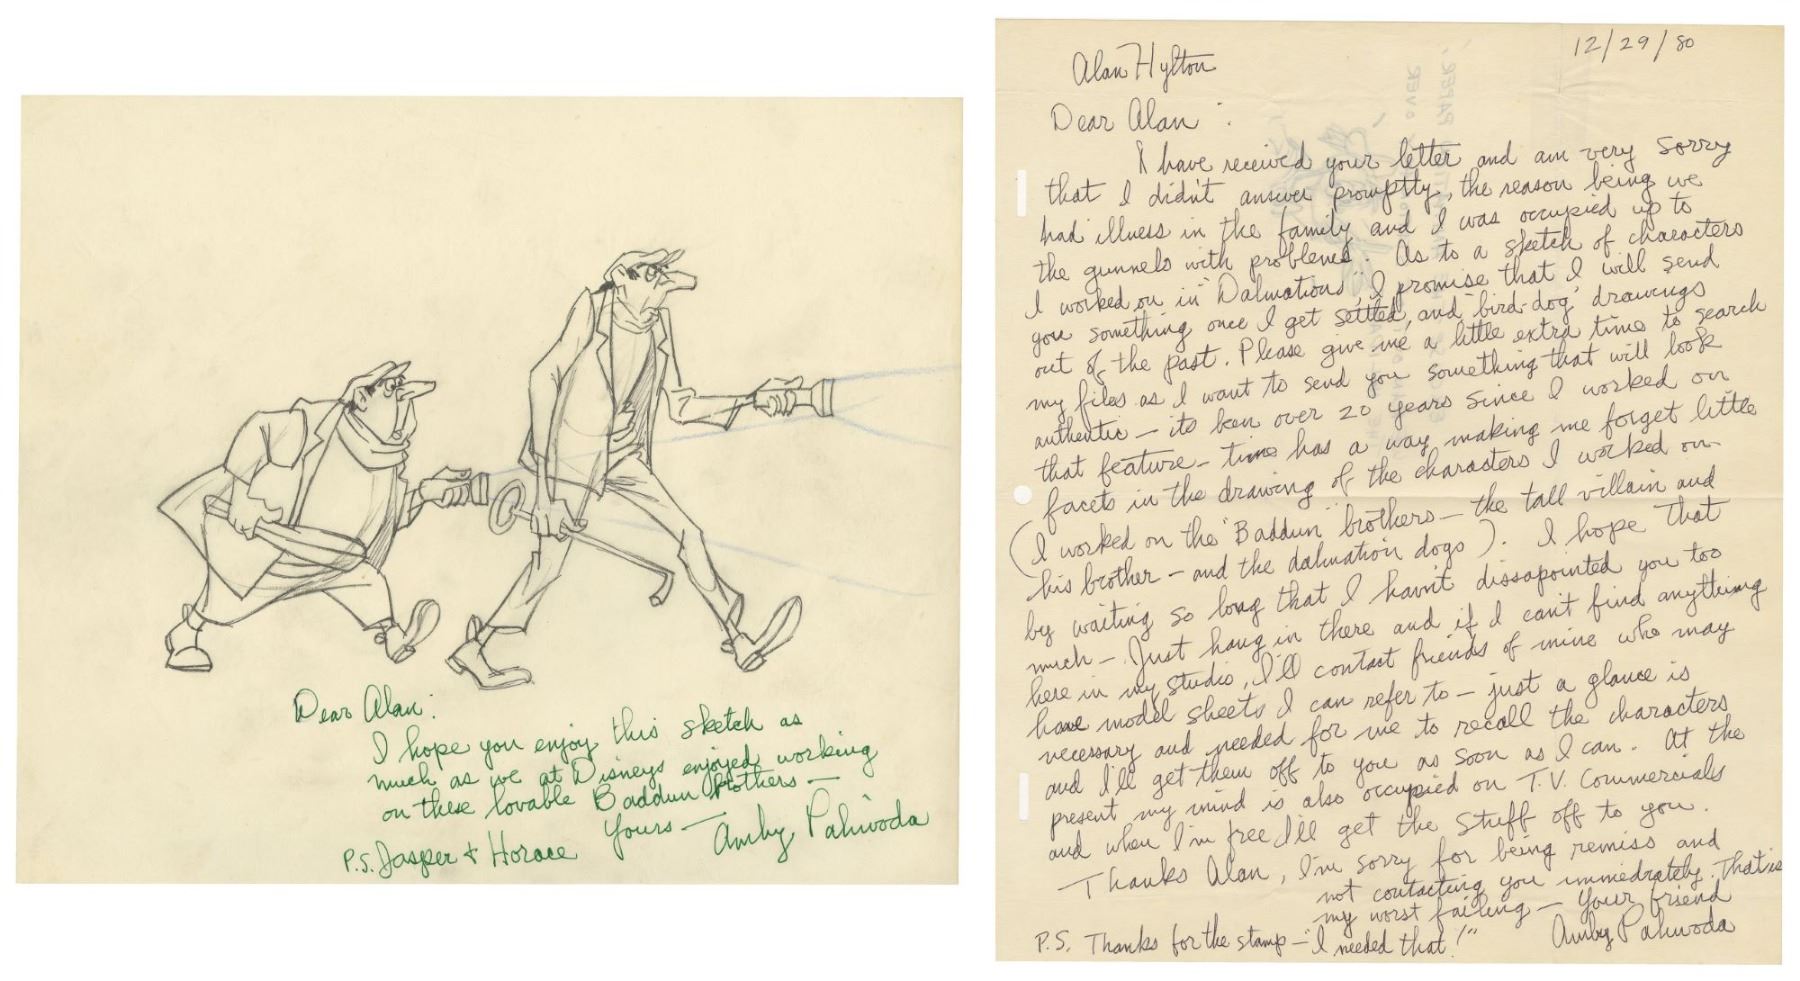 Dear Alan:
I hope you enjoy this sketch as
much as we at Disneys enjoyed working
on these lovable Baddun brothers—
Yours— Amby Paliwoda
P.S. Jasper & Horace
12/29/80
Alan Hylton
Dear Alan:
I have received your letter and am very sorry
that I didn't answer promptly, the reason being we
had illness in the family and I was occupied up to
the gunnels with problems. As to a sketch of characters
I worked on in "Dalmations", I promise that I will send
you something once I get settled, and 'bird-dog' drawings
out of the past. Please give me a little extra time to search
my files as I want to send you something that will look
authentic — its been over 20 years since I worked on
that feature — time has a way making me forget little
facets in the drawing of the characters I worked on
(I worked on the "Baddun" brothers — the tall villain and
his brother — and the dalmation dogs). I hope that
by waiting so long that I havn't dissapointed you too
much —. Just hang in there and if I can't find anything
here in my studio, I'll contact friends of mine who may
have model sheets I can refer to — just a glance is
necessary and needed for me to recall the characters
and I'll get them off to you as soon as I can. At the
present my mind is also occupied on T.V. Commercials
and when I'm free I'll get the stuff off to you.
Thanks Alan, I'm sorry for being remiss and
not contacting you immediately. That is
my worst failing — Your friend
Amby Paliwoda
P.S. Thanks for the stamp — "I needed that!"